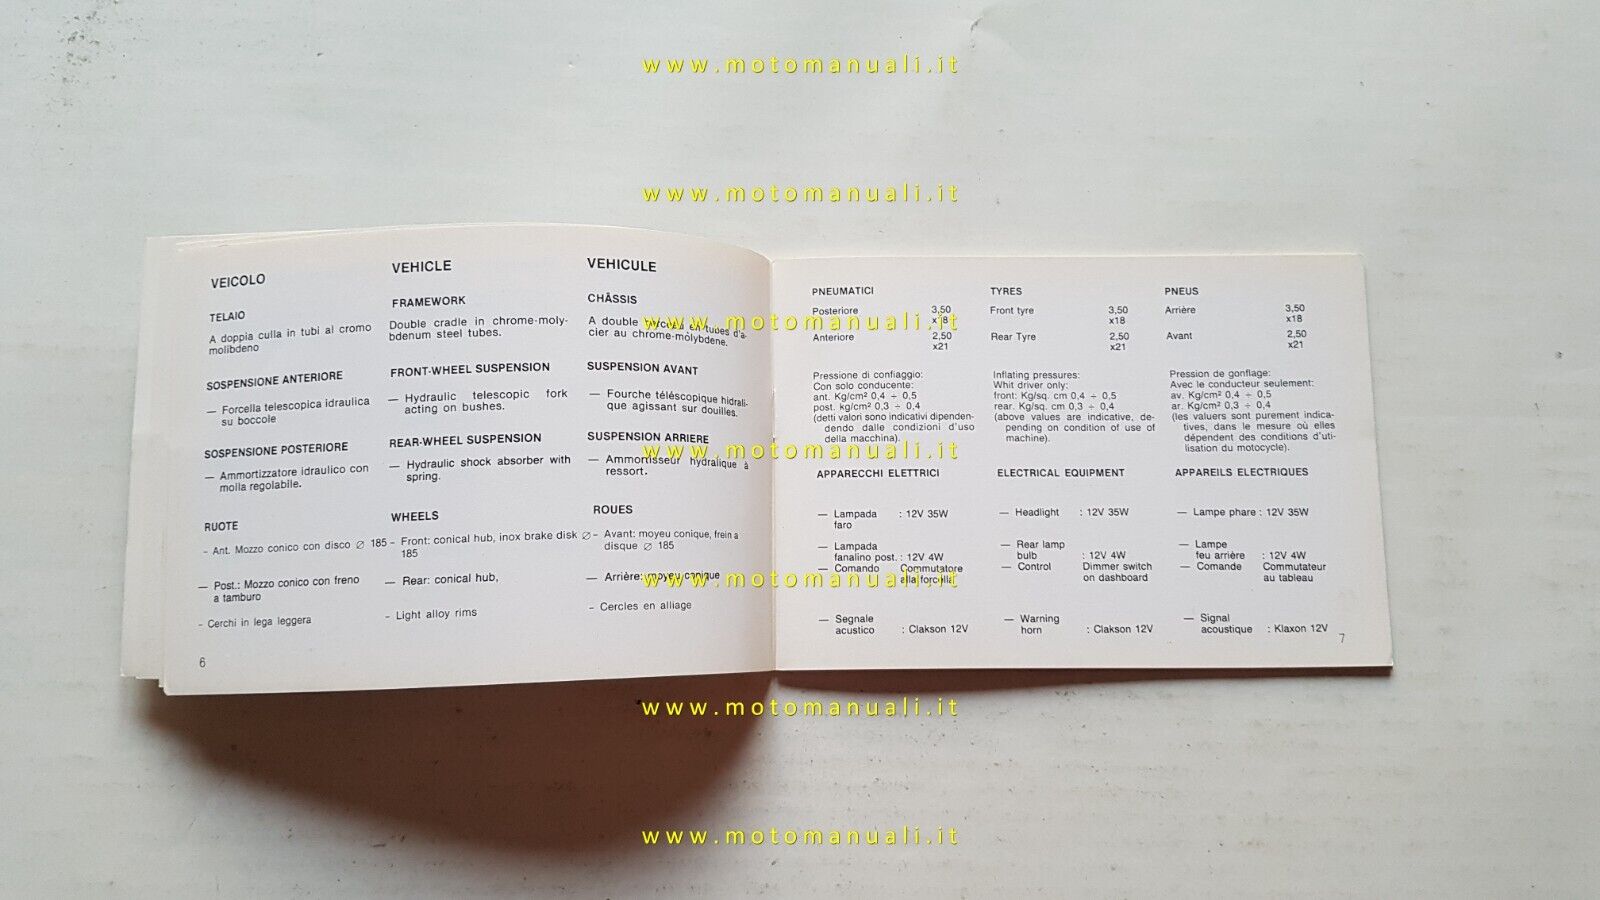 www.motomanuali.it
www.motomanuali.it
VEICOLO
TELAIO
A doppia culla in tubi al cromo
molibdeno
SOSPENSIONE ANTERIORE
— Forcella telescopica idraulica
su boccole
SOSPENSIONE POSTERIORE
— Ammortizzatore idraulico con
molla regolabile.
RUOTE
- Ant. Mozzo conico con disco ∅ 185
— Post.: Mozzo conico con freno
a tamburo
- Cerchi in lega leggera
6
VEHICLE
FRAMEWORK
Double cradle in chrome-moly-
bdenum steel tubes.
FRONT-WHEEL SUSPENSION
— Hydraulic telescopic fork
acting on bushes.
REAR-WHEEL SUSPENSION
— Hydraulic shock absorber with
spring.
WHEELS
- Front: conical hub, inox brake disk ∅
185
— Rear: conical hub,
- Light alloy rims
VEHICULE
CHÂSSIS
A double berceau en tubes d'a-
cier au chrome-mòlybdene.
SUSPENSION AVANT
— Fourche téléscopique hidrali-
que agissant sur douilles.
SUSPENSION ARRIERE
— Ammortisseur hydralique à
ressort.
ROUES
- Avant: moyeu conique, frein a
disque ∅ 185
— Arrière: moyeu conique
- Cercles en alliage
www.motomanuali.it
www.motomanuali.it
www.motomanuali.it
PNEUMATICI
Posteriore 3,50
x18
Anteriore 2,50
x21
Pressione di confiaggio:
Con solo conducente:
ant. Kg/cm² 0,4 ÷ 0,5
post. kg/cm² 0,3 ÷ 0,4
(detti valori sono indicativi dipenden-
dendo dalle condizioni d'uso
della macchina).
APPARECCHI ELETTRICI
— Lampada : 12V 35W
faro
— Lampada
fanalino post. : 12V 4W
— Comando Commutatore
alla forcella
— Segnale
acustico : Clakson 12V
TYRES
Front tyre 3,50
x18
Rear Tyre 2,50
x21
Inflating pressures:
Whit driver only:
front: Kg/sq. cm 0,4 ÷ 0,5
rear. Kg/sq. cm 0,3 ÷ 0,4
(above values are indicative, de-
pending on condition of use of
machine).
ELECTRICAL EQUIPMENT
— Headlight : 12V 35W
— Rear lamp
bulb : 12V 4W
— Control Dimmer switch
on dashboard
— Warning
horn : Clakson 12V
PNEUS
Arrière 3,50
x18
Avant 2,50
x21
Pression de gonflage:
Avec le conducteur seulement:
av. Kg/cm² 0,4 ÷ 0,5
ar. Kg/cm² 0,3 ÷ 0,4
(les valuers sont purement indica-
tives, dans le mesure où elles
dépendent des conditions d'uti-
lisation du motocycle).
APPAREILS ELECTRIQUES
— Lampe phare : 12V 35W
— Lampe
feu arrière : 12V 4W
— Comande Commutateur
au tableau
— Signal
acoustique : Klaxon 12V
7
www.motomanuali.it
www.motomanuali.it